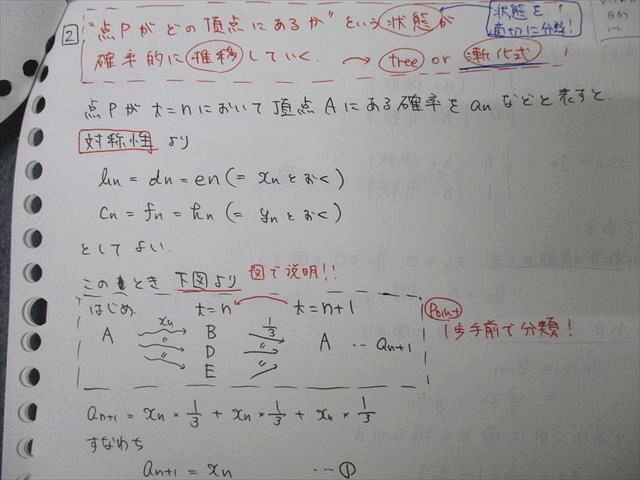 2
"点Pがどの頂点にあるか"という状態が
確率的に推移していく. → tree or 漸化式!
状態を
適切に分類!
点Pがt=nにおいて頂点Aにある確率をanなどと表すと.
対称性より
bn = dn = en (= xnとおく)
cn = fn = hn (= ynとおく)
としてよい.
このとき 下図より 図で説明!!
はじめ t=n t=n+1
A xn B 1/3 A … an+1
〃 D 〃
〃 E 〃
Point
1歩手前で分類!
an+1 = xn × 1/3 + xn × 1/3 + xn × 1/3
すなわち
an+1 = xn …①